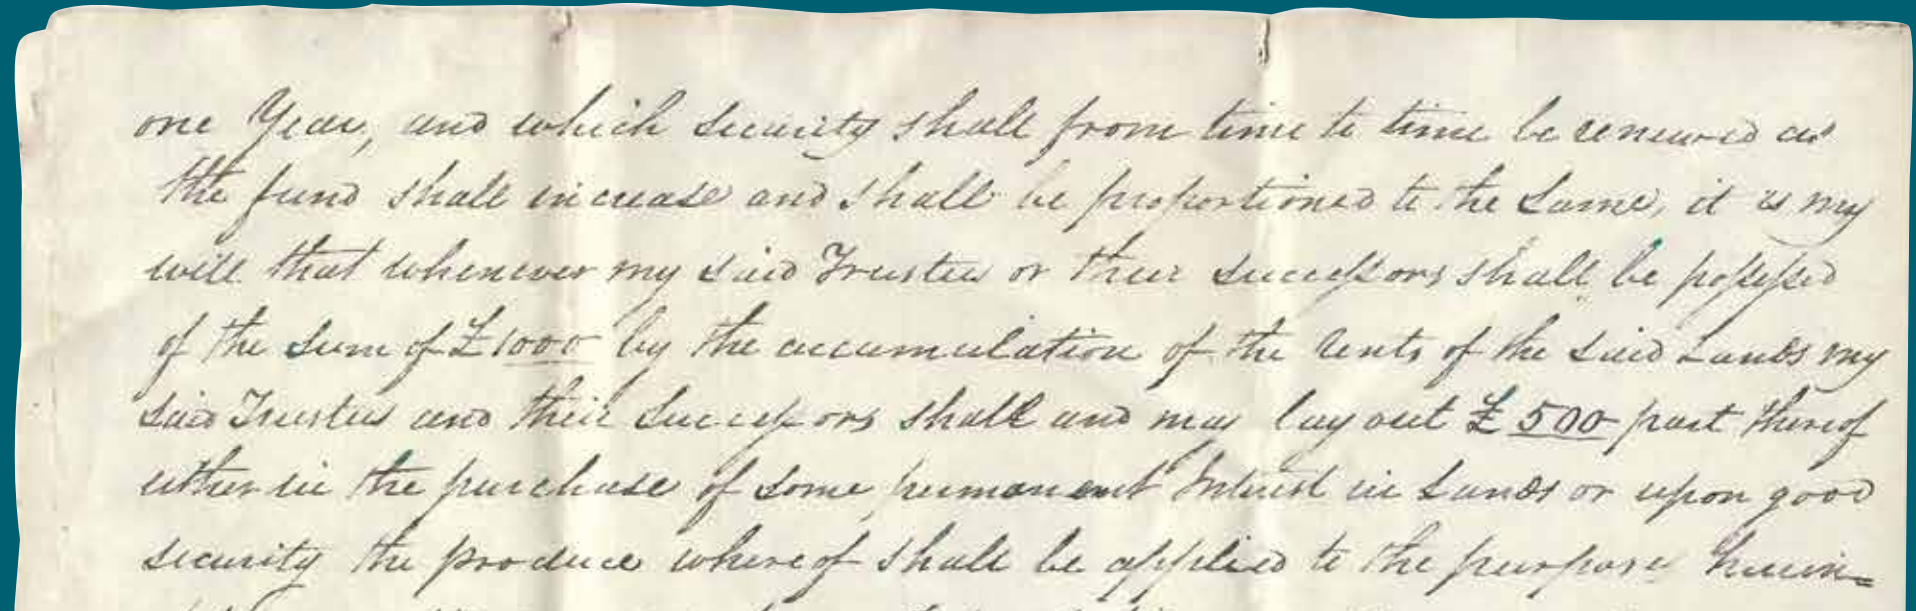 one Year, and which security shall from time to time be renewed as
the fund shall increase and shall be proportioned to the same, it is my
will that whenever my said Trustees or their successors shall be possessed
of the sum of £1000 by the accumulation of the rents of the said Lands my
said Trustees and their successors shall and may lay out £500 part thereof
either in the purchase of some permanent Interest in Lands or upon good
security the produce whereof shall be applied to the purposes herein=